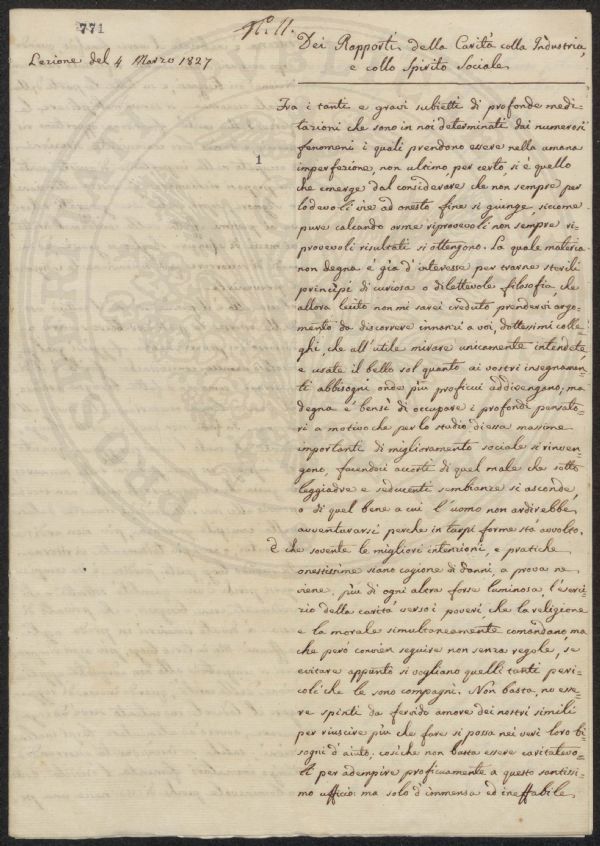 771
N.º 11.
Lezione del 4 Marzo 1827
Dei Rapporti della Carità colla Industria,
e collo Spirito Sociale
1
Fra i tanti e gravi subietti di profonde medi=
tazioni che sono in noi determinati dai numerosi
fenomeni i quali prendono essere nella umana
imperfezione, non ultimo per certo, si è quello
che emerge dal considerare che non sempre per
lodevoli vie ad onesto fine si giunge, siccome
pure calcando orme riprovevoli non sempre ri=
provevoli risultati si ottengono. La quale materia
non degna è già d'interesse per trarne sterili
principj di curiosa o dilettevole filosofia, che
allora lecito non mi sarei creduto prendervi argo=
mento da discorrere innanzi a voi, dottissimi colle=
ghi, che all'utile mirare unicamente intendete,
e usate il bello sol quanto ai vostri insegnamen=
ti abbisogni onde più proficui addivengano; ma
degna è bensì di occupare i profondi pensato=
ri a motivo che per lo studio di essa massime
importanti di miglioramento sociale si rinven=
gono, facendoci accorti di quel male che sotto
leggiadre e seducenti sembianze si asconde,
o di quel bene a cui l'uomo non ardirebbe
avventurarsi perche in turpi forme stà avvolto.
E che sovente le migliori intenzioni, e pratiche
onestissime siano cagione di danni, a prova ne
viene, più di ogni altra forse luminosa, l'eserci=
zio della carità verso i poveri, che la religione
e la morale simultaneamente comandano, ma
che però convien seguire non senza regole, se
evitare appunto si vogliano quelli tanti peri=
coli che le sono compagni. Non basta, no esse=
re spinti da fervido amore dei nostri simili
per riuscire più che fare si possa nei veri loro bi=
sogni d'aiuto; cosìche non basta essere caritatevo=
li per adempire proficuamente a questo santissi=
mo ufficio: ma solo d'immensa ed ineffabile